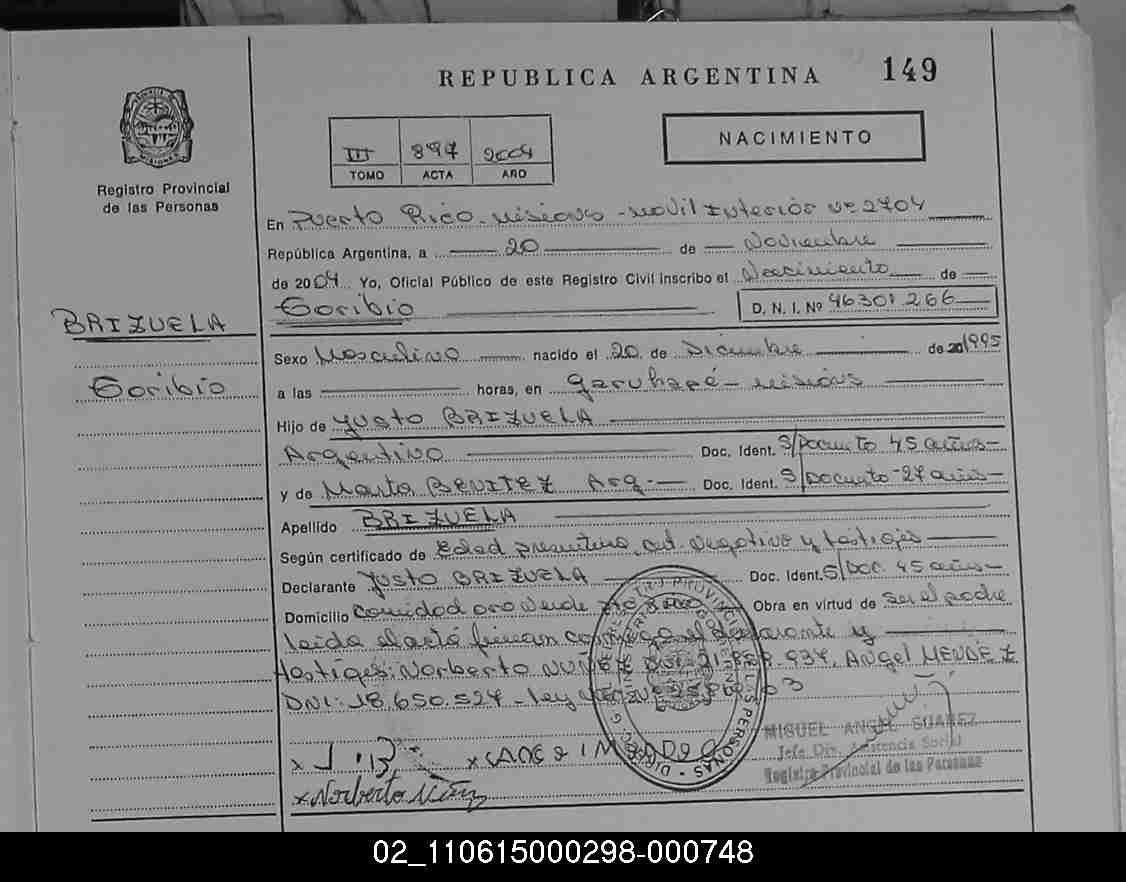 REPUBLICA ARGENTINA 149
MISIONES
Registro Provincial
de las Personas
III 897 2004
TOMO ACTA AÑO
NACIMIENTO
En Puerto Rico - Misiones - Movil Interior Nº 2704
República Argentina, a 20 de Noviembre
de 2004 Yo, Oficial Público de este Registro Civil inscribo el Nacimiento de
Toribio D. N. I. Nº 46301.266
BRIZUELA
Toribio
Sexo Masculino nacido el 20 de Diciembre de 20 1995
a las horas, en Garuhapé - Misiones
Hijo de Justo BRIZUELA
Argentino Doc. Ident. S/Docunto 45 años
y de Marta BENITEZ Arg. Doc. Ident. S/Docunto - 27 años
Apellido BRIZUELA
Según certificado de Edad negativo y testigos
Declarante Justo BRIZUELA Doc. Ident. S/Doc. 45 años
Domicilio Obra en virtud de ser el padre
leida el acta firman conmigo el declarante y
testigos: Norberto NUÑEZ DNI: 937, Angel MENDEZ
DNI: 18.650.527 - ley
MIGUEL ANGEL SUAREZ
Jefe Div. Asistencia Social
Registro Provincial de las Personas
x J B
x Norberto
02_110615000298-000748